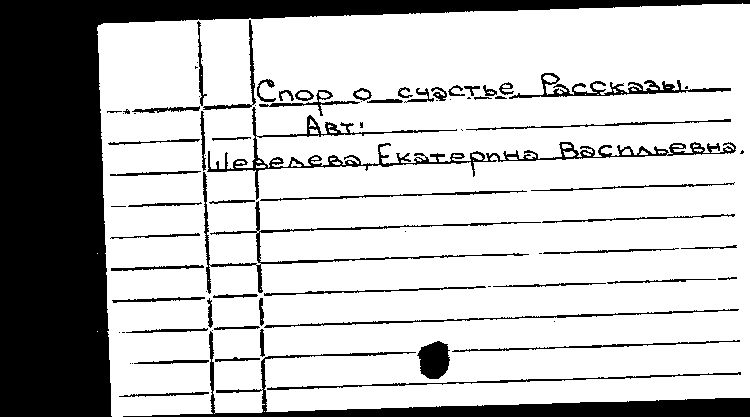 Спор о счастье. Рассказы.
Авт:
Шевелева, Екатерина Васильевна.